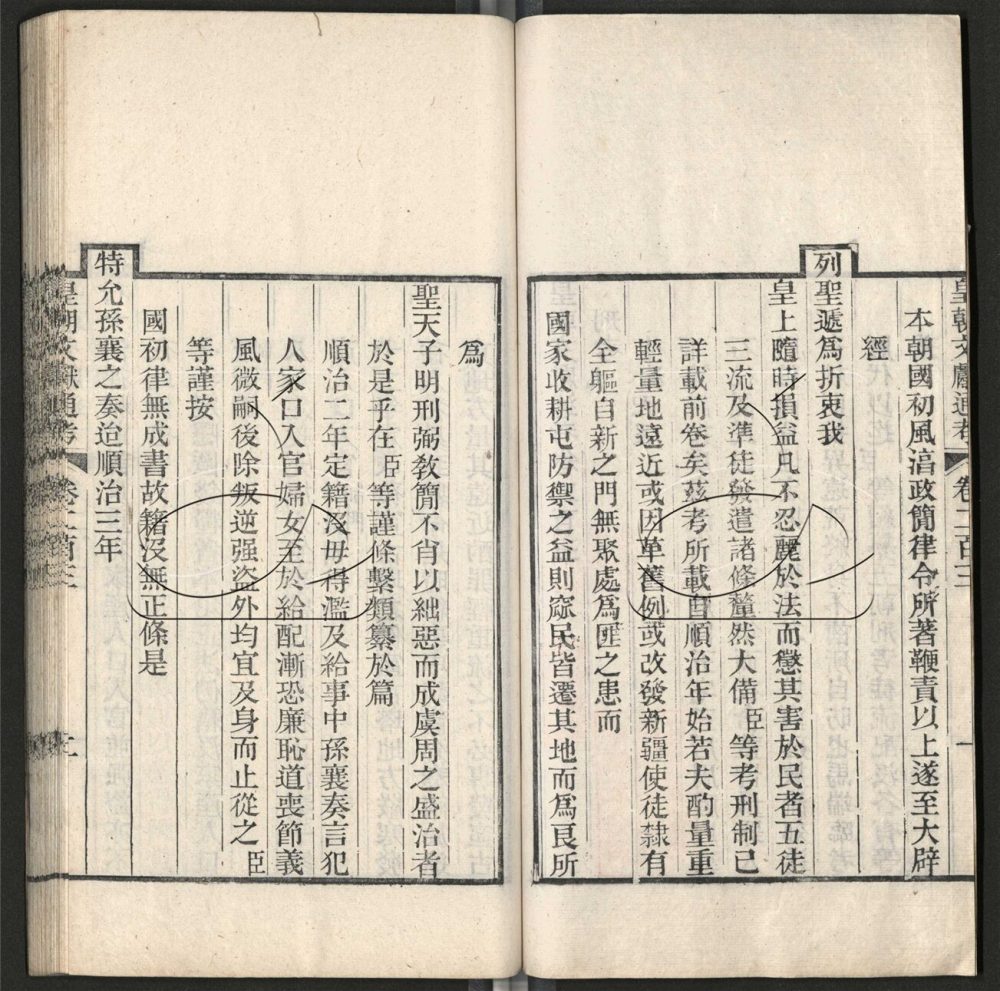 皇朝文獻通考 卷二百三 一
本朝國初風湻政簡律令所著鞭責以上遂至大辟
經
列聖遞爲折衷我
皇上隨時損益凡不忍麗於法而懲其害於民者五徒
三流及準徒發遣諸條釐然大備臣等考刑制已
詳載前卷矣茲考所載酋順治年始若夫酌量重
輕量地遠近或因革舊例或改發新疆使徒隸有
全軀自新之門無聚處爲匪之患而
國家收耕屯防禦之益則窳民皆遷其地而爲良所
爲
聖天子明刑弼敎簡不肖以絀惡而成虞周之盛治者
於是乎在臣等謹條繫類纂於篇
順治二年定籍沒毋得濫及給事中孫襄奏言犯
人家口入官婦女至於給配漸恐廉恥道喪節義
風微嗣後除叛逆强盜外均宜及身而止從之臣
等謹按
國初律無成書故籍沒無正條是
特允孫襄之奏迨順治三年
皇朝文獻通考 卷二百三 二